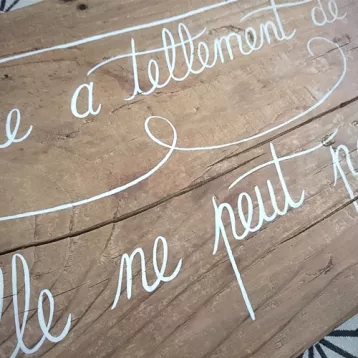 e a tellement de
elle ne peut p